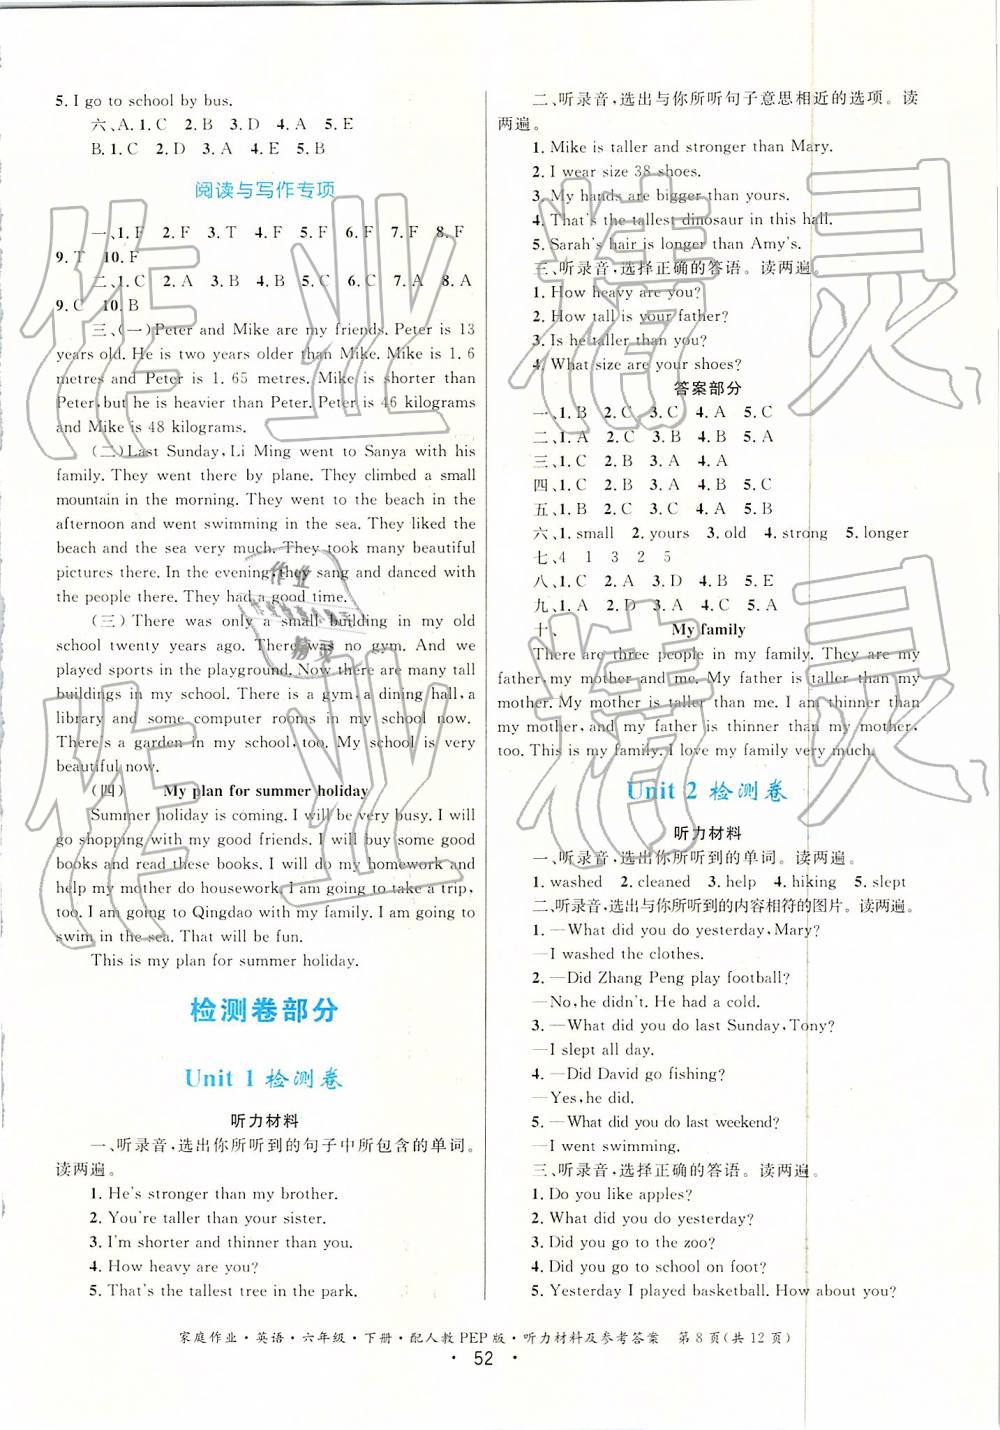 5. I go to school by bus.
六、A. 1. C 2. B 3. D 4. A 5. E
B. 1. C 2. D 3. A 4. E 5. B
阅读与写作专项
一、1. F 2. F 3. T 4. F 5. F 6. F 7. F 8. F
9. T 10. F
二、1. C 2. A 3. B 4. C 5. B 6. C 7. A 8. A
9. C 10. B
三、(一)Peter and Mike are my friends. Peter is 13
years old. He is two years older than Mike. Mike is 1. 6
metres and Peter is 1. 65 metres. Mike is shorter than
Peter, but he is heavier than Peter. Peter is 46 kilograms
and Mike is 48 kilograms.
(二)Last Sunday, Li Ming went to Sanya with his
family. They went there by plane. They climbed a small
mountain in the morning. They went to the beach in the
afternoon and went swimming in the sea. They liked the
beach and the sea very much. They took many beautiful
pictures there. In the evening, they sang and danced with
the people there. They had a good time.
(三)There was only a small building in my old
school twenty years ago. There was no gym. And we
played sports in the playground. Now there are many tall
buildings in my school. There is a gym, a dining hall, a
library and some computer rooms in my school now.
There's a garden in my school, too. My school is very
beautiful now.
(四) My plan for summer holiday
Summer holiday is coming. I will be very busy. I will
go shopping with my good friends. I will buy some good
books and read these books. I will do my homework and
help my mother do housework. I am going to take a trip,
too. I am going to Qingdao with my family. I am going to
swim in the sea. That will be fun.
This is my plan for summer holiday.
检测卷部分
Unit 1 检测卷
听力材料
一、听录音,选出你所听到的句子中所包含的单词。
读两遍。
1. He's stronger than my brother.
2. You're taller than your sister.
3. I'm shorter and thinner than you.
4. How heavy are you?
5. That's the tallest tree in the park.
二、听录音,选出与你所听句子意思相近的选项。读
两遍。
1. Mike is taller and stronger than Mary.
2. I wear size 38 shoes.
3. My hands are bigger than yours.
4. That's the tallest dinosaur in this hall.
5. Sarah's hair is longer than Amy's.
三、听录音,选择正确的答语。读两遍。
1. How heavy are you?
2. How tall is your father?
3. Is he taller than you?
4. What size are your shoes?
答案部分
一、1. B 2. C 3. C 4. A 5. C
二、1. A 2. C 3. A 4. B 5. A
三、1. C 2. B 3. A 4. A
四、1. C 2. B 3. A 4. B 5. C
五、1. C 2. B 3. A 4. A 5. B
六、1. small 2. yours 3. old 4. strong 5. longer
七、4 1 3 2 5
八、1. C 2. A 3. D 4. B 5. E
九、1. C 2. A 3. B 4. C 5. A
十、 My family
There are three people in my family. They are my
father, my mother and me. My father is taller than my
mother. My mother is taller than me. I am thinner than
my mother, and my father is thinner than my mother,
too. This is my family. I love my family very much.
Unit 2 检测卷
听力材料
一、听录音,选出你所听到的单词。读两遍。
1. washed 2. cleaned 3. help 4. hiking 5. slept
二、听录音,选出与你所听到的内容相符的图片。读两遍。
1. —What did you do yesterday, Mary?
—I washed the clothes.
2. —Did Zhang Peng play football?
—No, he didn't. He had a cold.
3. —What did you do last Sunday, Tony?
—I slept all day.
4. —Did David go fishing?
—Yes, he did.
5. —What did you do last weekend?
—I went swimming.
三、听录音,选择正确的答语。读两遍。
1. Do you like apples?
2. What did you do yesterday?
3. Did you go to the zoo?
4. Did you go to school on foot?
5. Yesterday I played basketball. How about you?
家庭作业·英语·六年级·下册·配人教PEP版·听力材料及参考答案 第8页(共12页)
· 52 ·
作业精灵
作业精灵